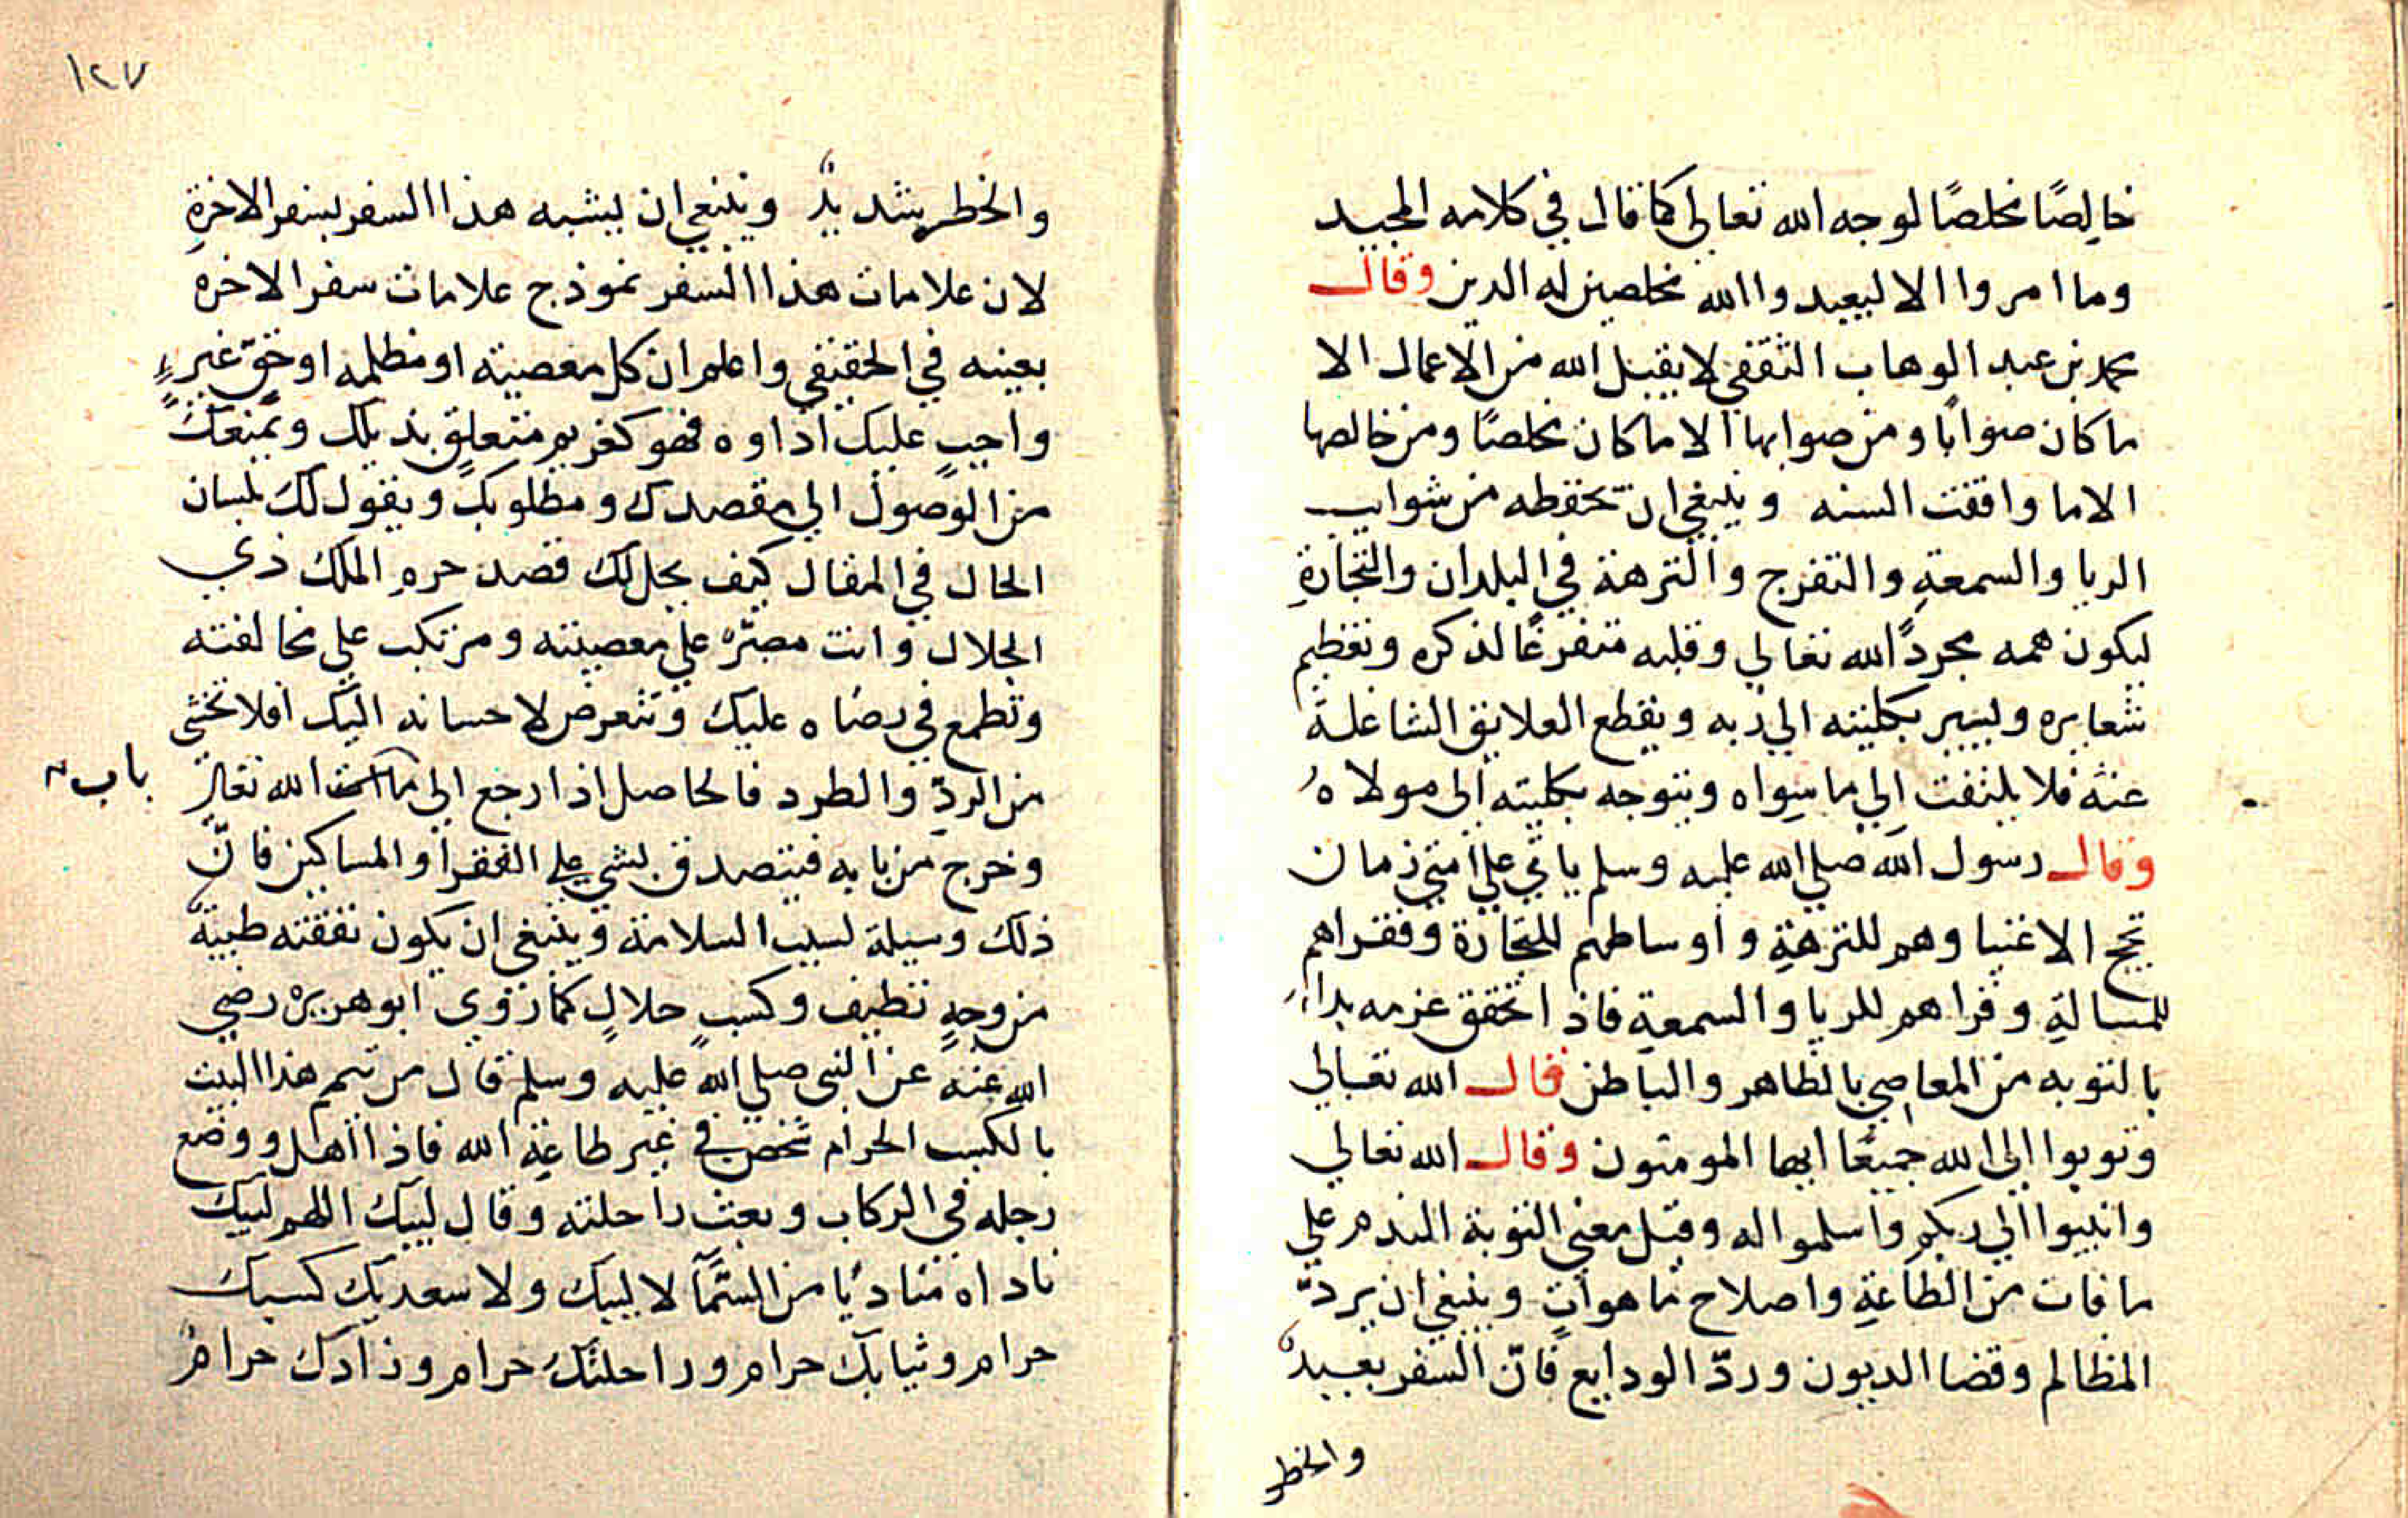 خالِصًا مخلصًا لوجه الله تعالى كما قال في كلامه المجيد
وما امروا الا ليعبدوا الله مخلصين له الدين وقال
محمد بن عبد الوهاب الثقفي لا يقبل الله من الاعمال الا
ما كان صوابًا ومن صوابها الا ما كان مخلصًا ومن خالصها
الا ما وافقت السنه وينبغي ان تحفظه من شوايب
الريا والسمعةِ والتفرج والنزهة في البلدان والتجارةِ
ليكون همه مجردًا لله تعالي وقلبه متفرغًا لذكره وتعظيم
شعايره وليسير بكليته الي ربه ويقطع العلايق الشاغلة
عنه فلا يلتفت الي ما سواه ويتوجه بكليته الى مولاهُ
وقال رسول الله صلي الله عليه وسلم ياتي علي امتي زمان
تحج الاغنيا وهم للنزهةِ واوساطهم للتجارة وفقراهم
للمسالةِ وقراهم للريا والسمعةِ فاذا تحقق عزمه بداء
بالتوبه من المعاصي بالظاهر والباطن قال الله تعالي
وتوبوا الى الله جميعًا ايها المومنون وقال الله تعالي
وانيبوا الي ربكم واسلموا له وقيل معني التوبة الندم علي
ما فات من الطاعةِ واصلاح ما هو اتٍ وينبغي ان يردّ
المظالم وقضا الديون وردّ الودايع فانّ السفر بعيدٌ
والخطر
١٢٧
والخطر شديدٌ وينبغي ان يشبه هذا السفر بسفر الاخرةِ
لان علامات هذا السفر نموذج علامات سفر الاخره
بعينه في الحقيقي واعلم ان كل معصيته او مظلمه او حقّ غيرٍ
واجبٍ عليك اداوه فهو كغريم متعلقٍ بذيلك ويمنعك
من الوصول الي مقصدك ومطلوبك ويقول لك بلسان
الحال في المقال كيف يحل لك قصد حرمِ الملك ذي
الجلال وانت مصرٌّ على معصيته ومرتكب علي مخالفته
وتطمع في رضاه عليك وتتعرض لاحسانه اليك افلا تخشي
من الردِّ والطرد فالحاصل اذا رجع الى الله تعالى
باب
وخرج من بابه فيتصدق بشي علي الفقرا والمساكين فانّ
ذلك وسيلة لسبب السلامة وينبغي ان يكون نفقته طيبةً
من وجهٍ نظيف وكسبٍ حلالٍ كما روى ابوهريره رضي
الله عنه عن النبي صلي الله عليه وسلم قال من تيمم هذا البيت
بالكسب الحرام شخص في غير طاعةِ الله فاذا اهل ووضع
رجله في الركاب وبعث راحلته وقال لبيك اللهم لبيك
ناداه مناديًا من السّمآ لا لبيك ولا سعديك كسبك
حرام وثيابك حرام وراحلتك حرام وزادك حرامٌ